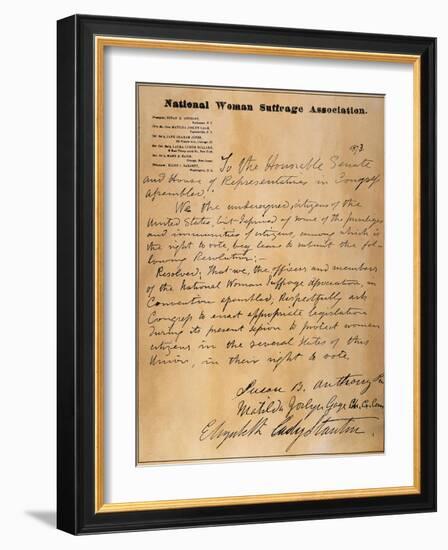 National Woman Suffrage Association.
President, SUSAN B. ANTHONY,
Rochester, N. Y.
MATILDA JOSLYN GAGE,
JANE GRAHAM JONES,
LAURA CURTIS BULLARD,
ELLEN C. SARGENT,
Washington, D. C.
1873
To the Honorable Senate
and House of Representatives in Congress
assembled,
We the undersigned, citizens of the
United States, but deprived of some of the privileges
and immunities of citizens, among which is
the right to vote, beg leave to submit the fol-
lowing Resolution:—
Resolved; That we, the officers and members
of the National Woman Suffrage Association, in
Convention assembled, Respectfully ask
Congress to enact appropriate legislation
during its present session to protect women
citizens in the several States of this
Union, in their right to vote.
Susan B. Anthony
Matilda Joslyn Gage
Elizabeth Cady Stanton.